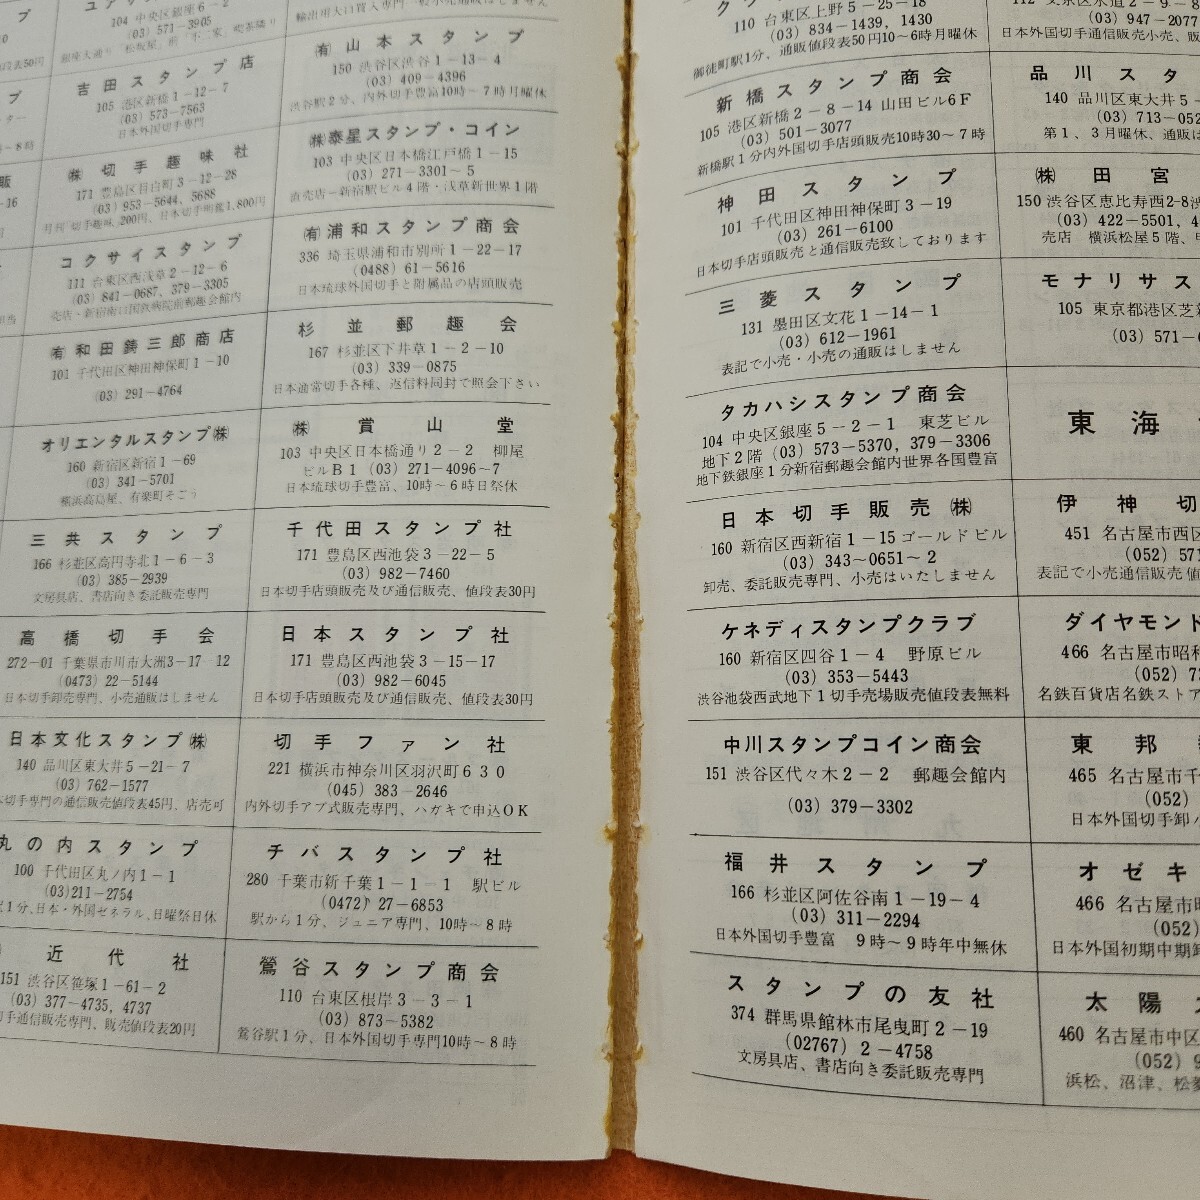 104 中央区銀座6-2
(03) 571-3905
吉田スタンプ店
105 港区新橋1-12-7
(03) 573-7563
日本外国切手専門
㈱切手趣味社
171 豊島区目白町3-12-28
(03) 953-5644、5688
月刊 切手趣味、200円、日本切手明鑑1,800円
コクサイスタンプ
111 台東区西浅草2-12-6
(03) 841-0687、379-3305
売店・新宿南口国鉄病院前郵趣会館内
㈲和田錡三郎商店
101 千代田区神田神保町1-10
(03) 291-4764
オリエンタルスタンプ㈱
160 新宿区新宿1-69
(03) 341-5701
横浜高島屋、有楽町そごう
三共スタンプ
166 杉並区高円寺北1-6-3
(03) 385-2939
文房具店、書店向き委託販売専門
高橋切手会
272-01 千葉県市川市大洲3-17-12
(0473) 22-5144
日本切手卸売専門、小売通販はしません
日本文化スタンプ㈱
140 品川区東大井5-21-7
(03) 762-1577
切手専門の通信販売値段表45円、店売可
丸の内スタンプ
100 千代田区丸ノ内1-1
(03)211-2754
1分、日本・外国ゼネラル、日曜祭日休
近代社
151 渋谷区笹塚1-61-2
(03) 377-4735, 4737
切手通信販売専門、販売値段表20円
㈲山本スタンプ
150 渋谷区渋谷1-13-4
(03) 409-4396
渋谷駅2分、内外切手豊富10時~7時月曜休
㈱泰星スタンプ・コイン
103 中央区日本橋江戸橋1-15
(03) 271-3301~5
直売店-新宿駅ビル4階・浅草新世界1階
㈲浦和スタンプ商会
336 埼玉県浦和市別所1-22-17
(0488) 61-5616
日本琉球外国切手と附属品の店頭販売
杉並郵趣会
167 杉並区下井草1-2-10
(03) 339-0875
日本通常切手各種、返信料同封で照会下さい
㈱賞山堂
103 中央区日本橋通り2-2 柳屋
ビルB1 (03) 271-4096~7
日本琉球切手豊富、10時~6時日祭休
千代田スタンプ社
171 豊島区西池袋3-22-5
(03) 982-7460
日本切手店頭販売及び通信販売、値段表30円
日本スタンプ社
171 豊島区西池袋3-15-17
(03) 982-6045
日本切手店頭販売及び通信販売、値段表30円
切手ファン社
221 横浜市神奈川区羽沢町630
(045) 383-2646
内外切手アプ式販売専門、ハガキで申込OK
チバスタンプ社
280 千葉市新千葉1-1-1 駅ビル
(0472) 27-6853
駅から1分、ジュニア専門、10時~8時
鶯谷スタンプ商会
110 台東区根岸3-3-1
(03) 873-5382
鶯谷駅1分、日本外国切手専門10時~8時
110 台東区上野5-25-18
(03) 834-1439, 1430
御徒町駅1分、通販値段表50円10~6時月曜休
新橋スタンプ商会
105 港区新橋2-8-14 山田ビル6F
(03) 501-3077
新橋駅1分内外国切手店頭販売10時30~7時
神田スタンプ
101 千代田区神田神保町3-19
(03) 261-6100
日本切手店頭販売と通信販売致しております
三菱スタンプ
131 墨田区文花1-14-1
(03) 612-1961
表記で小売・小売の通販はしません
タカハシスタンプ商会
104 中央区銀座5-2-1 東芝ビル
地下2階 (03) 573-5370, 379-3306
地下鉄銀座1分新宿郵趣会館内世界各国豊富
日本切手販売㈱
160 新宿区西新宿1-15ゴールドビル
(03) 343~0651~2
卸売、委託販売専門、小売はいたしません
ケネディスタンプクラブ
160 新宿区四谷1-4 野原ビル
(03) 353-5443
渋谷池袋西武地下1切手売場販売値段表無料
中川スタンプコイン商会
151 渋谷区代々木2-2 郵趣会館内
(03) 379-3302
福井スタンプ
166 杉並区阿佐谷南1-19-4
(03) 311-2294
日本外国切手豊富 9時~9時年中無休
スタンプの友社
374 群馬県館林市尾曳町2-19
(02767) 2-4758
文房具店、書店向き委託販売専門
(03) 947-2077
日本外国切手通信販売小売、販
品川スタ
140 品川区東大井5-
(03) 713-052
第1、3月曜休、通販は
㈱田宮
150 渋谷区恵比寿西2-8渋
(03) 422-5501, 4
売店 横浜松屋5階、
モナリサス
105 東京都港区芝新
(03) 571-6
東海
伊神切
451 名古屋市西区
(052) 571
表記で小売通信販売値
ダイヤモンド
466 名古屋市昭和
(052) 73
名鉄百貨店名鉄ストア
東邦
465 名古屋市千
(052)
日本外国切手卸小
オゼキ
466 名古屋市昭
(052)
日本外国初期中期卸
太陽
460 名古屋市中区
(052) 9
浜松、沼津、松菱